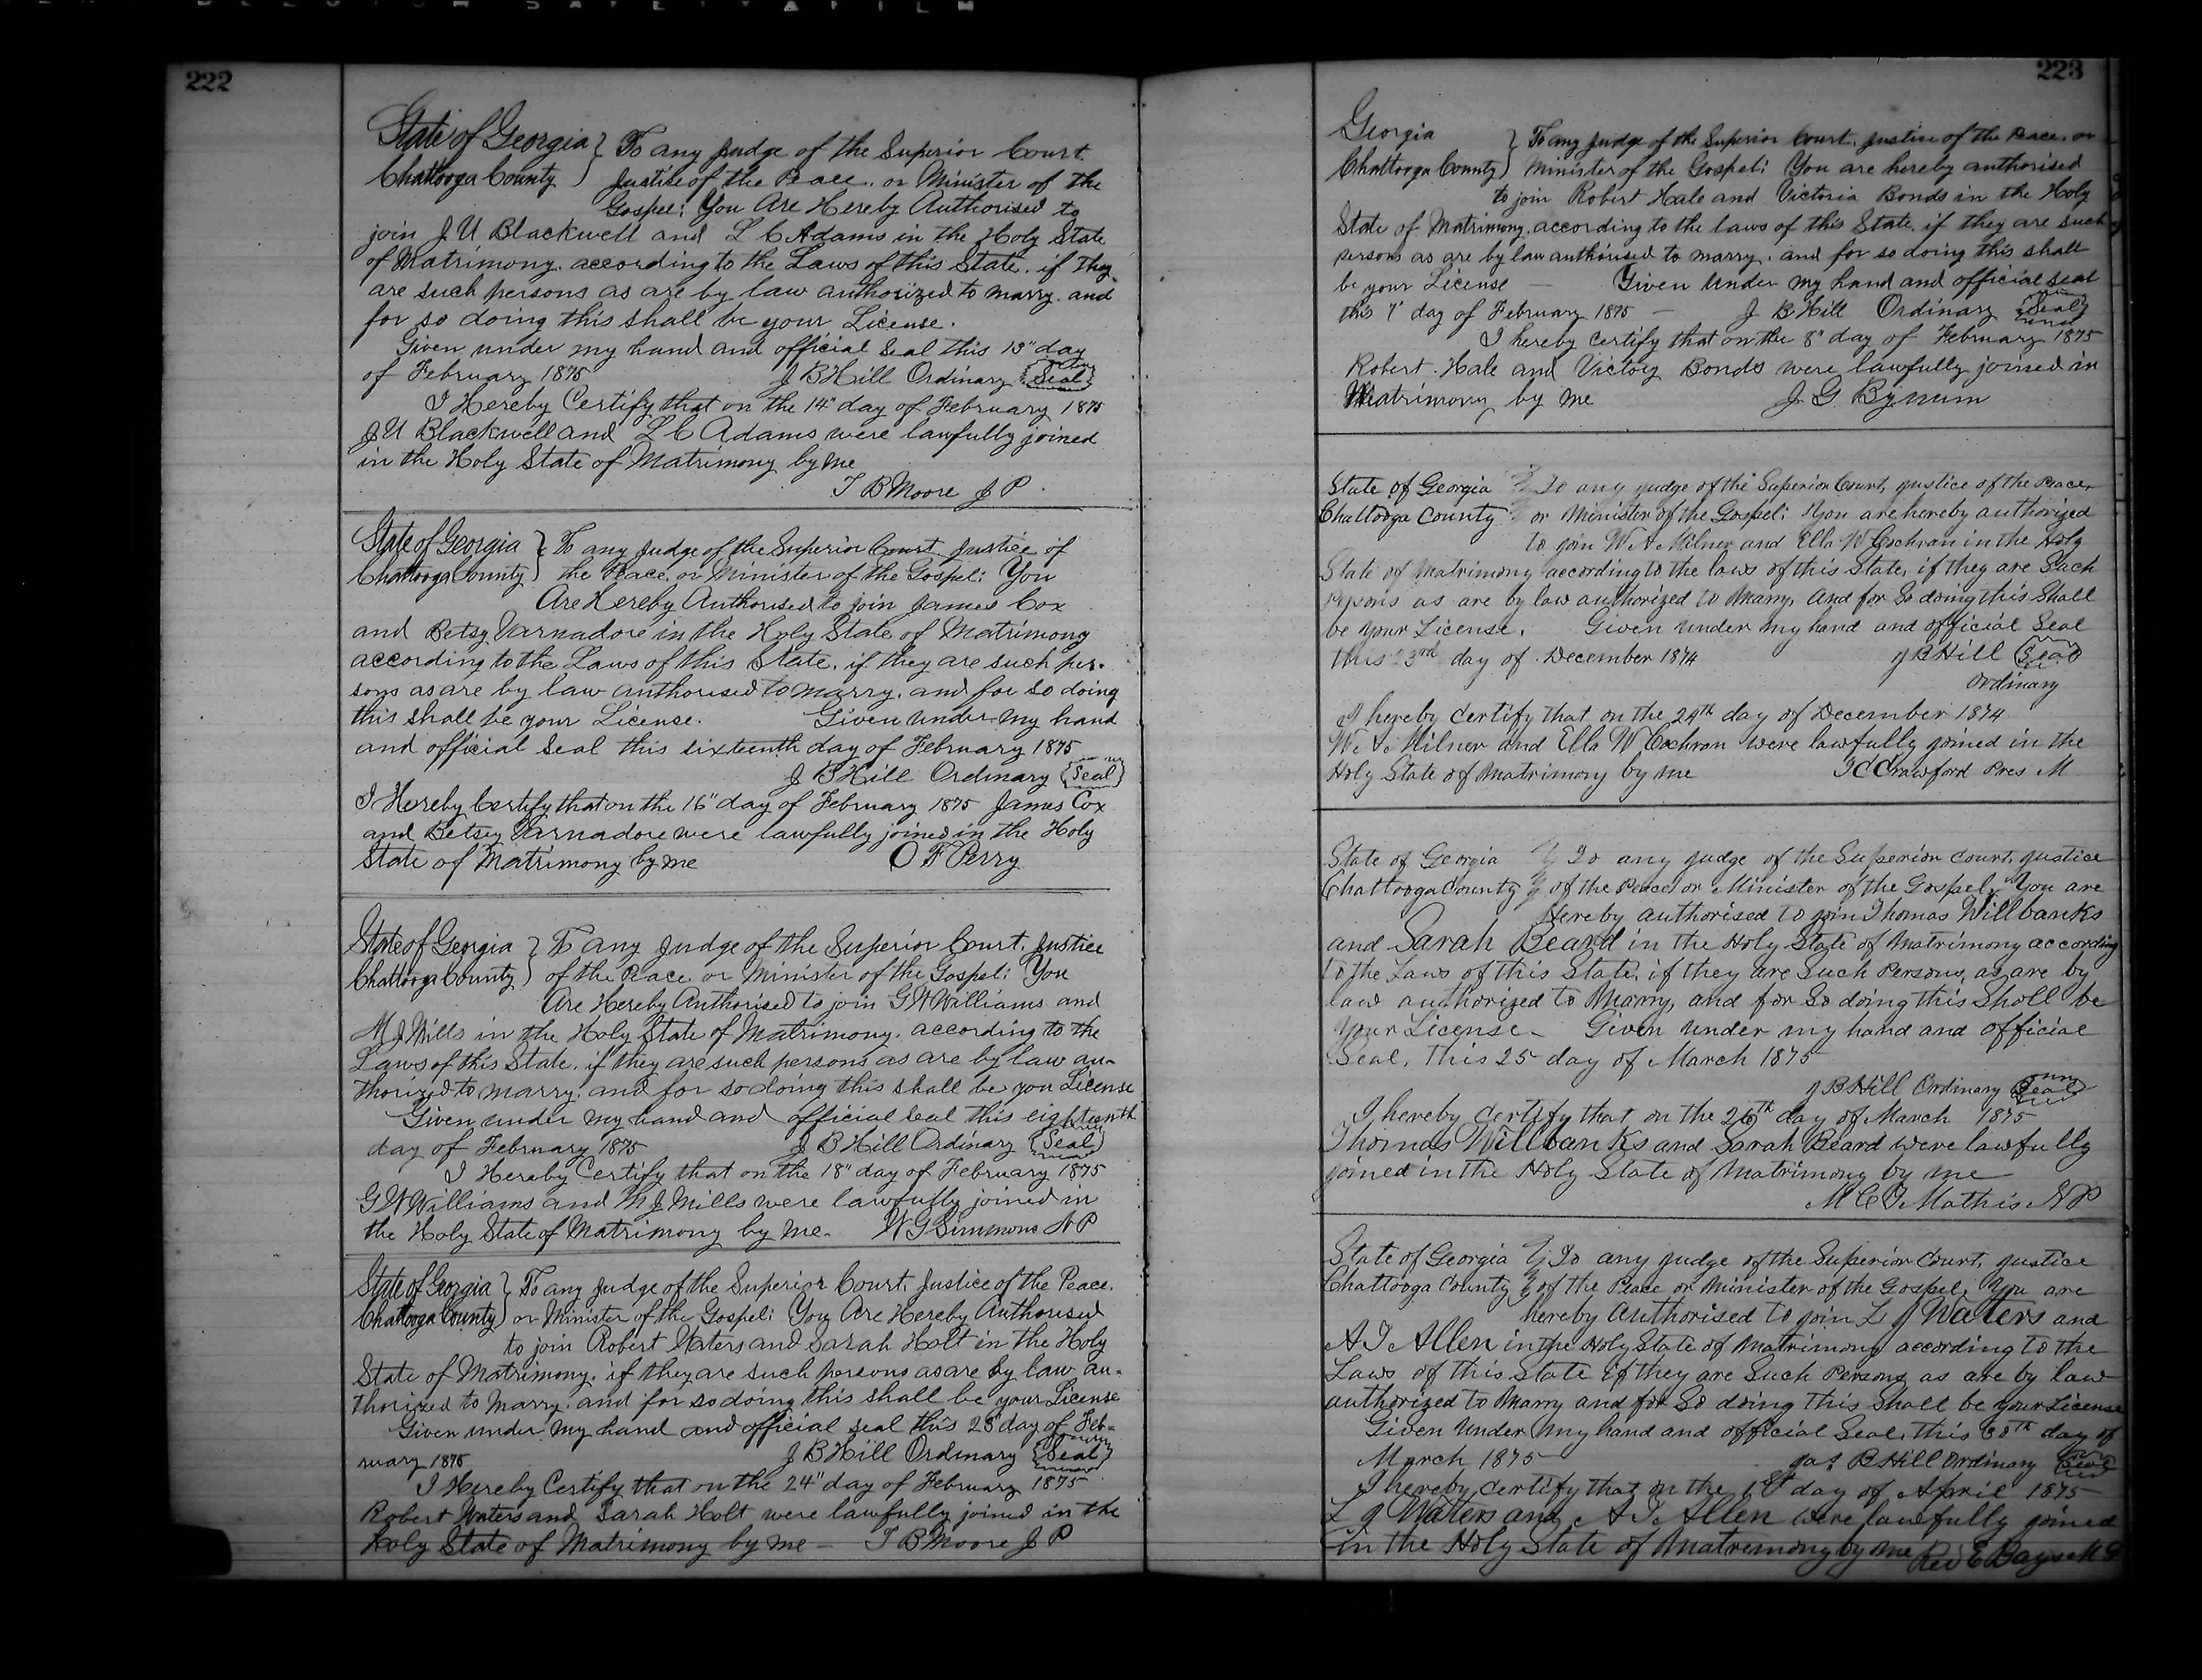 222
State of Georgia } To any Judge of the Superior Court.
Chattooga County ) Justice of the Peace. or Minister of the
Gospel: You Are Hereby Authorised to
join J U Blackwell and L C Adams in the Holy State
of Matrimony. according to the Laws of this State. if they
are such persons as are by law authorized to marry. and
for so doing this shall be your License.
Given under my hand and official Seal this 13" day
of February 1875 J B Hill Ordinary {Seal}
I Hereby Certify that on the 14" day of February 1875
J U Blackwell and L C Adams were lawfully joined
in the Holy State of Matrimony by me
T B Moore J P
State of Georgia } To any Judge of the Superior Court Justice of
Chattooga County ) the Peace. or Minister of the Gospel: You
Are Hereby Authorised to join James Cox
and Betsy Varnadore in the Holy State of Matrimony
according to the Laws of this State. if they are such per-
sons as are by law authorised to marry. and for so doing
this shall be your License. Given under my hand
and official Seal this sixteenth day of February 1875
J B Hill Ordinary {Seal}
I Hereby Certify that on the 16" day of February 1875 James Cox
and Betsey Varnadore were lawfully joined in the Holy
State of Matrimony by me O F Perry
State of Georgia } To any Judge of the Superior Court. Justice
Chattooga County ) of the Peace or Minister of the Gospel: You
Are Hereby Authorised to join G W Williams and
M J Mills in the Holy State of Matrimony. according to the
Laws of this State. if they are such persons as are by law au-
thorized to marry. and for so doing this shall be you License
Given under my hand and official seal this eighteenth
day of February 1875 J B Hill Ordinary {Seal}
I Hereby Certify that on the 18" day of February 1875
G W Williams and M J Mills were lawfully joined in
the Holy State of Matrimony by me. W G Simmons N P
State of Georgia } To any Judge of the Superior Court. Justice of the Peace.
Chattooga County ) or Minister of the Gospel: You Are Hereby Authorised
to join Robert Waters and Sarah Holt in the Holy
State of Matrimony. if they are such persons as are by law au-
thorized to marry. and for so doing this shall be your License
Given under my hand and official seal this 23" day of Feb-
ruary 1875 J B Hill Ordinary {Seal}
I Hereby Certify that on the 24" day of February 1875
Robert Waters and Sarah Holt were lawfully joined in the
Holy State of Matrimony by me — T B Moore J P
223
Georgia } To any Judge of the Superior Court. Justice of the Peace. or
Chattooga County ) Minister of the Gospel: You are hereby authorised
to join Robert Hale and Victoria Bonds in the Holy
State of Matrimony. according to the laws of this State. if they are such
persons as are by law authorised to marry. and for so doing this shall
be your License — Given under my hand and official seal
this day of February 1875 — J B Hill Ordinary {Seal}
I hereby certify that on the 8" day of February 1875
Robert Hale and Victory Bonds were lawfully joined in
Matrimony by me J. G. Bynum
State of Georgia } To any Judge of the Superior Court, Justice of the Peace,
Chattooga County } or Minister of the Gospel: You are hereby authorized
to join W. A. Milner and Ella W Cochran in the Holy
State of Matrimony according to the laws of this State, if they are Such
persons as are by law authorized to Marry, And for So doing this Shall
be your License. Given under my hand and official Seal
this 23rd day of December 1874 J B Hill (Seal)
Ordinary
I hereby certify that on the 24th day of December 1874
W. A. Milner and Ella W Cochran were lawfully joined in the
Holy State of Matrimony by me J C Crawford Pres M
State of Georgia } To any Judge of the Superior Court, Justice
Chattooga County } of the Peace or Minister of the Gospel, You are
Hereby authorised to join Thomas Willbanks
and Sarah Beard in the Holy State of Matrimony according
to the Laws of this State, if they are Such Persons, as are by
law authorized to Marry, and for So doing this Shall be
Your License. Given under my hand and official
Seal, this 25 day of March 1875
J B Hill Ordinary (Seal)
I hereby certify that on the 26th day of March 1875
Thomas Willbanks and Sarah Beard were lawfully
joined in the Holy State of Matrimony by me
M C Mathis N P
State of Georgia } To any Judge of the Superior Court, Justice
Chattooga County } of the Peace or Minister of the Gospel, You are
hereby Authorised to join L J Waters and
A. J. Allen in the Holy State of Matrimony according to the
Laws of this State if they are Such Persons as are by law
authorized to Marry and for So doing this Shall be Your License
Given under my hand and official Seal, this 30th day of
March 1875 Jas B Hill Ordinary (Seal)
I hereby certify that on the 1st day of April 1875
L J Waters and A. J. Allen were lawfully joined
in the Holy State of Matrimony by me Rev E